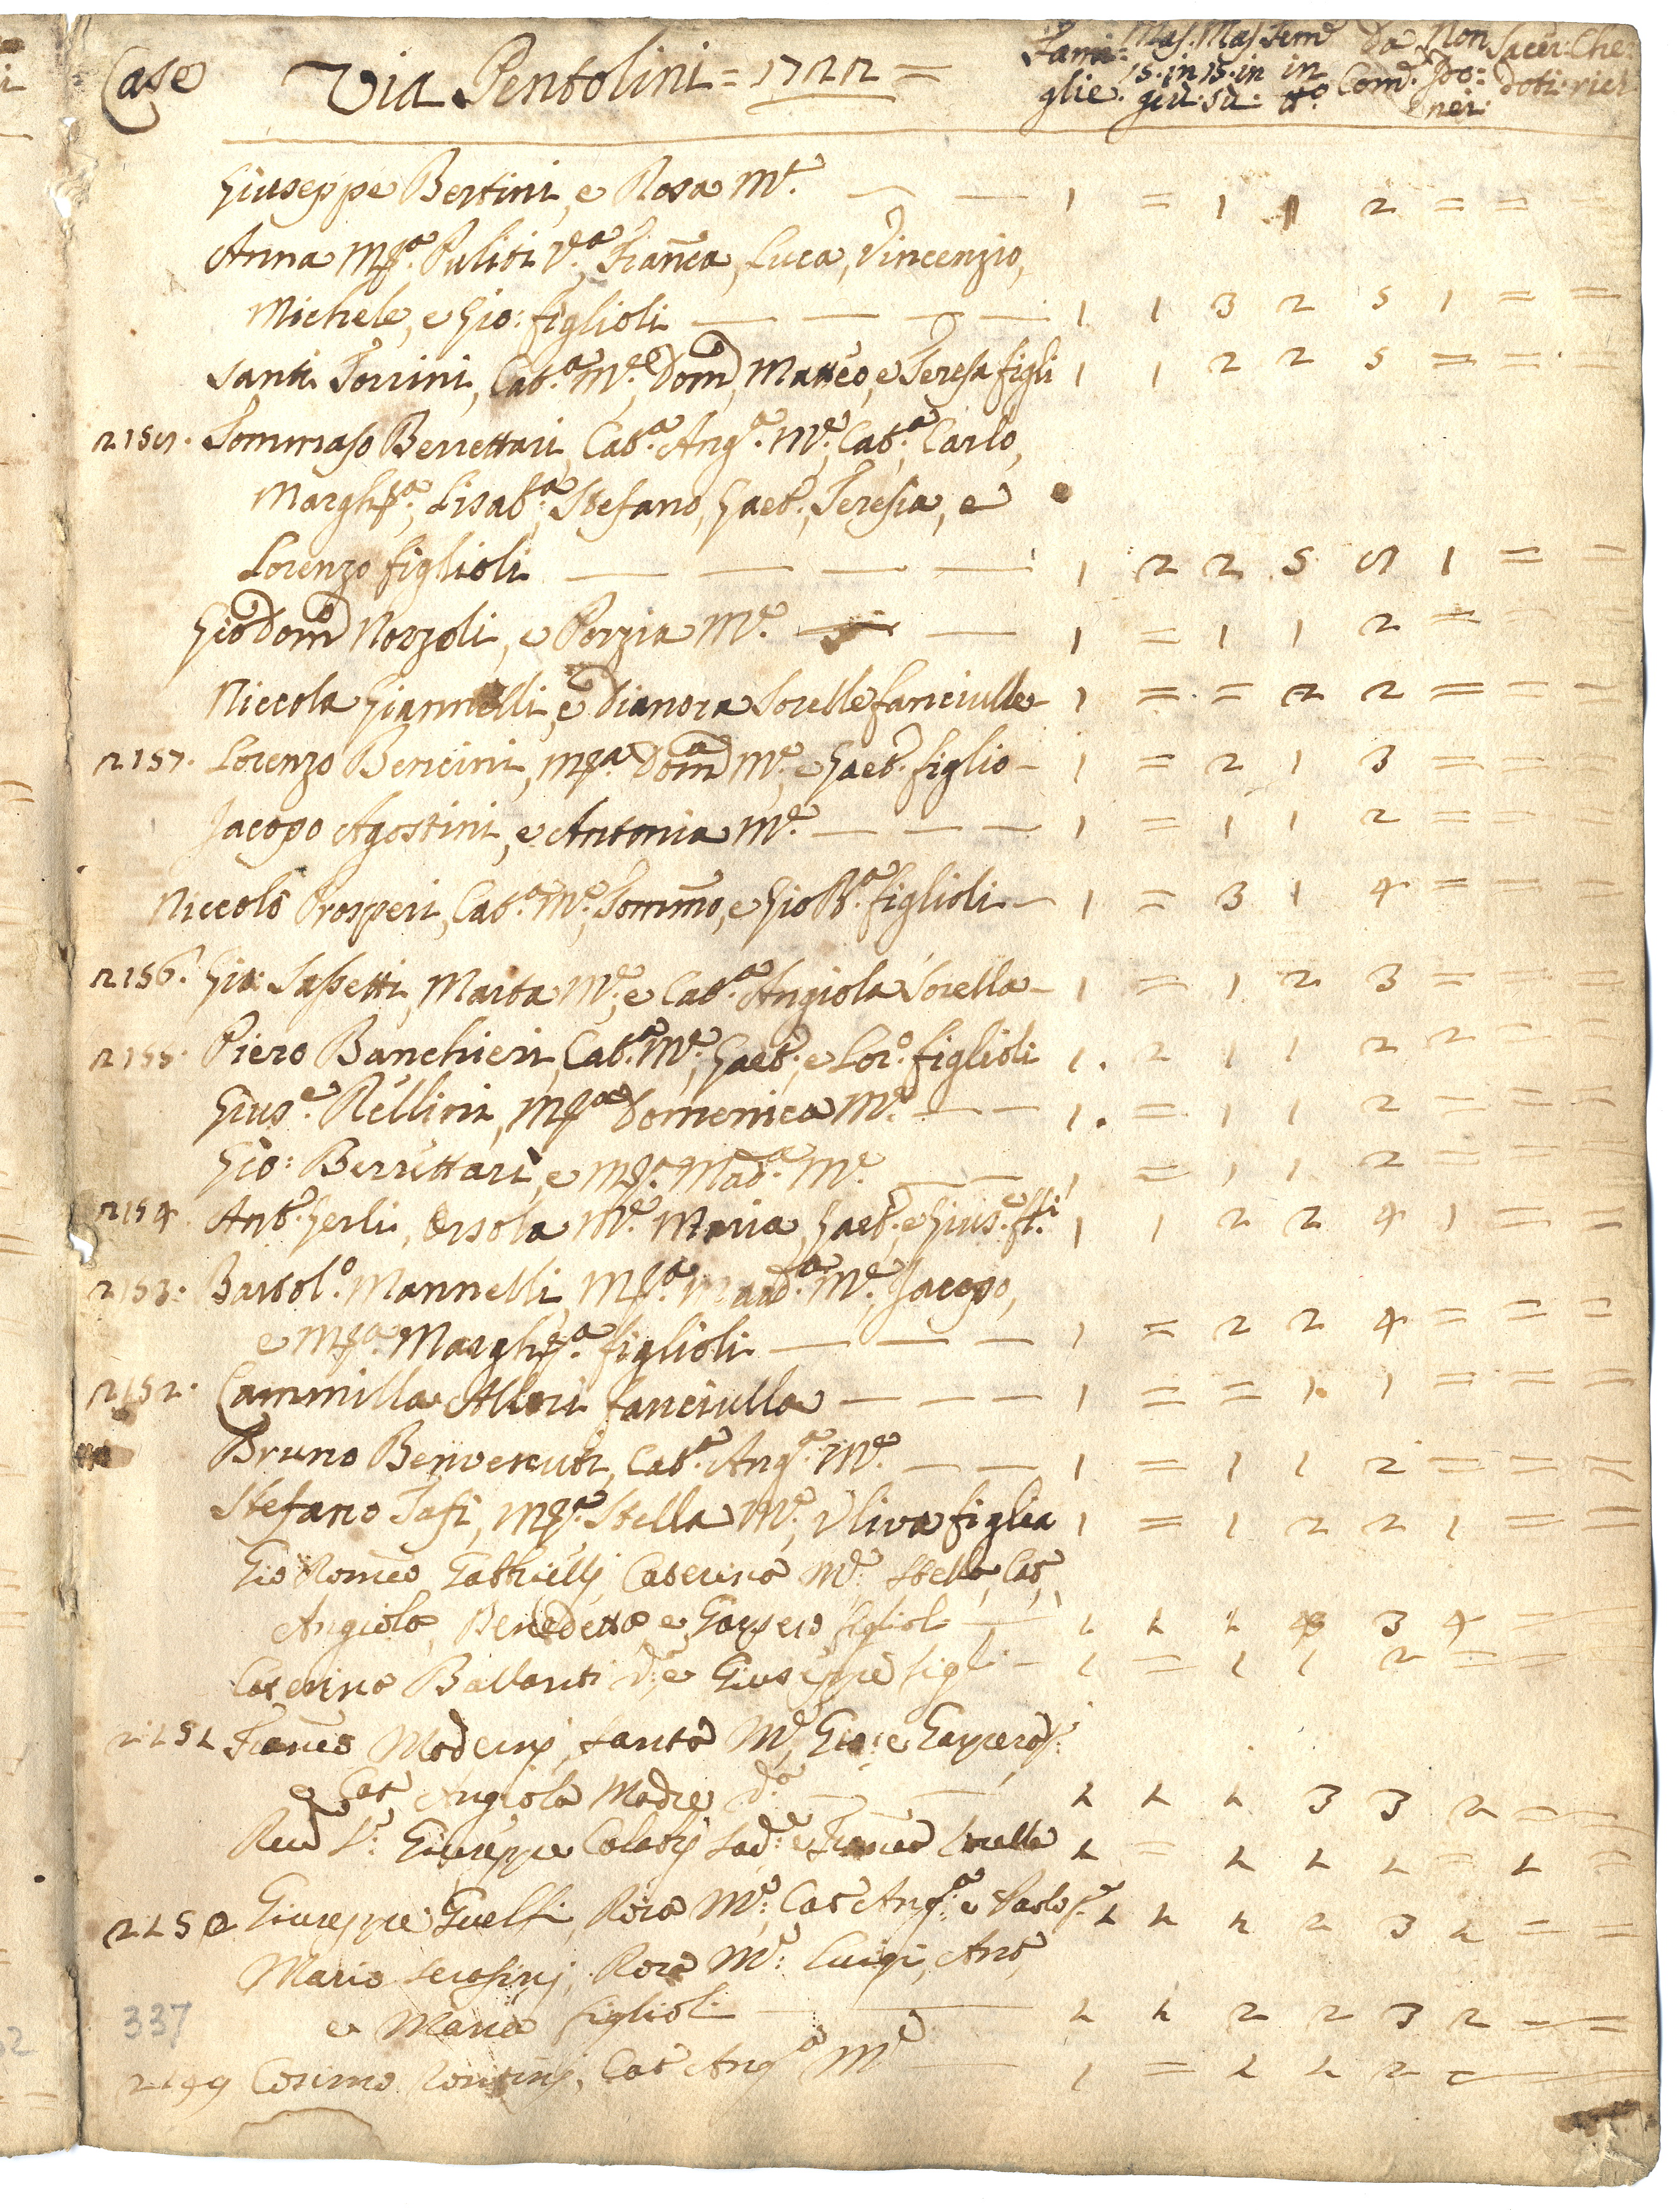 Case Via Pentolini = 1722 = Fami: Mas. Mas. Fem.e da Non Sacer: Che
glie. 15. in 15. in in Com. Sto: doti: rici
giù: sù: t.o nei:
Giuseppe Bertini, e Rosa M.e — — 1 = 1 1 2 = =
Anna M.a Puliti V.a, Fran.ca, Luca, Vincenzio,
Michele, e Gio: figlioli — — — — 1. 1 3 2 5 1 = =
Santi Torrini, Cat.a M.e, Dom.o, Matteo, e Teresa figli 1 1 2 2 5 = = =
Tommaso Berrettari, Cat.a Ang.a M.e, Cat.a, Carlo,
Margh.a, Lisab.a, Stefano, Gaet.o, Teresia, e
Lorenzo figlioli — — — — 1 2 2 5 1 = =
Gio Dom.o Novzoli, e Porzia M.e — — 1 = 1 1 2 = = =
Niccola Giannelli, e Dianora Sorelle fanciulle 1 = = 2 2 = = =
2157. Lorenzo Bencini, M.a Dom.a M.e, e Gaet.o figlio — 1 = 2 1 3 = = =
Jacopo Agostini, e Antonia M.e — — — 1 = 1 1 2 = = =
Niccolò Prosperi, Cat.a M.e, Tommo, e Gio B.a figlioli — 1 = 3 1 4 = = =
2156. Gio: Sassetti, Marta M.e, e Cat.a Angiola Sorella — 1 = 1 2 3 = = =
2155. Piero Banchieri, Cat.a M.e, Gaet.o, e Lor.o figlioli 1. 2 1 1 2 2 = =
Gius.e Rellini, M.a Domenica M.e — — 1. = 1 1 2 = = =
Gio: Berrettari, e M.a Mad.a M.e — — 1 = 1 1 2 = = =
2154 Ant.o Gerli, Orsola M.e Maria, Gaet.o e Gius.e f.li 1 1 2 2 4 1 = =
2153. Bartol.o Mannelli, M.a Mad.a M.e, Jacopo,
e M.a Margh.a figlioli — — — 1 = 2 2 4 = = =
2152. Cammilla Allori fanciulla — — — 1 = = 1. 1 = = =
Bruno Benvenuti, Cat.a Ang.a M.e — — 1 = 1 1 2 = = =
Stefano Tafi, M.a Stella M.e, Uliva figlia 1 = 1 2 2 1 = =
Gio Romeo Gabrielli Caterina M.e Stella, Cat.
Angiola, Benedetta e Gaspero figlioli — 1 1 1 3 4 =
Caterina Ballanti V.a e Giuseppe figli — 1 = 1 1 2 = =
2151 Fran.co Moderni, Santa M.e, Gio: e Gaspero f.
e Cat Angiola Madre V.a — — 1 1 1 3 3 2 = =
Rev.d S.r Giuseppe Colatij Sad.e e Fran.ca Sorella 1 = 1 1 1 = 1 =
2150 Giuseppe Guelfi, Rosa M.e, Cat Ang.a e Paolo f. 1 1 1 2 3 1 = =
Mario Serafinj, Rosa M.e Luigi, Ant.o,
e Maria figlioli — — 1 1 2 2 3 2 = =
337
2149 Cosimo Contini, Cat Ang.a M.e — 1 = 1 1 2 = =